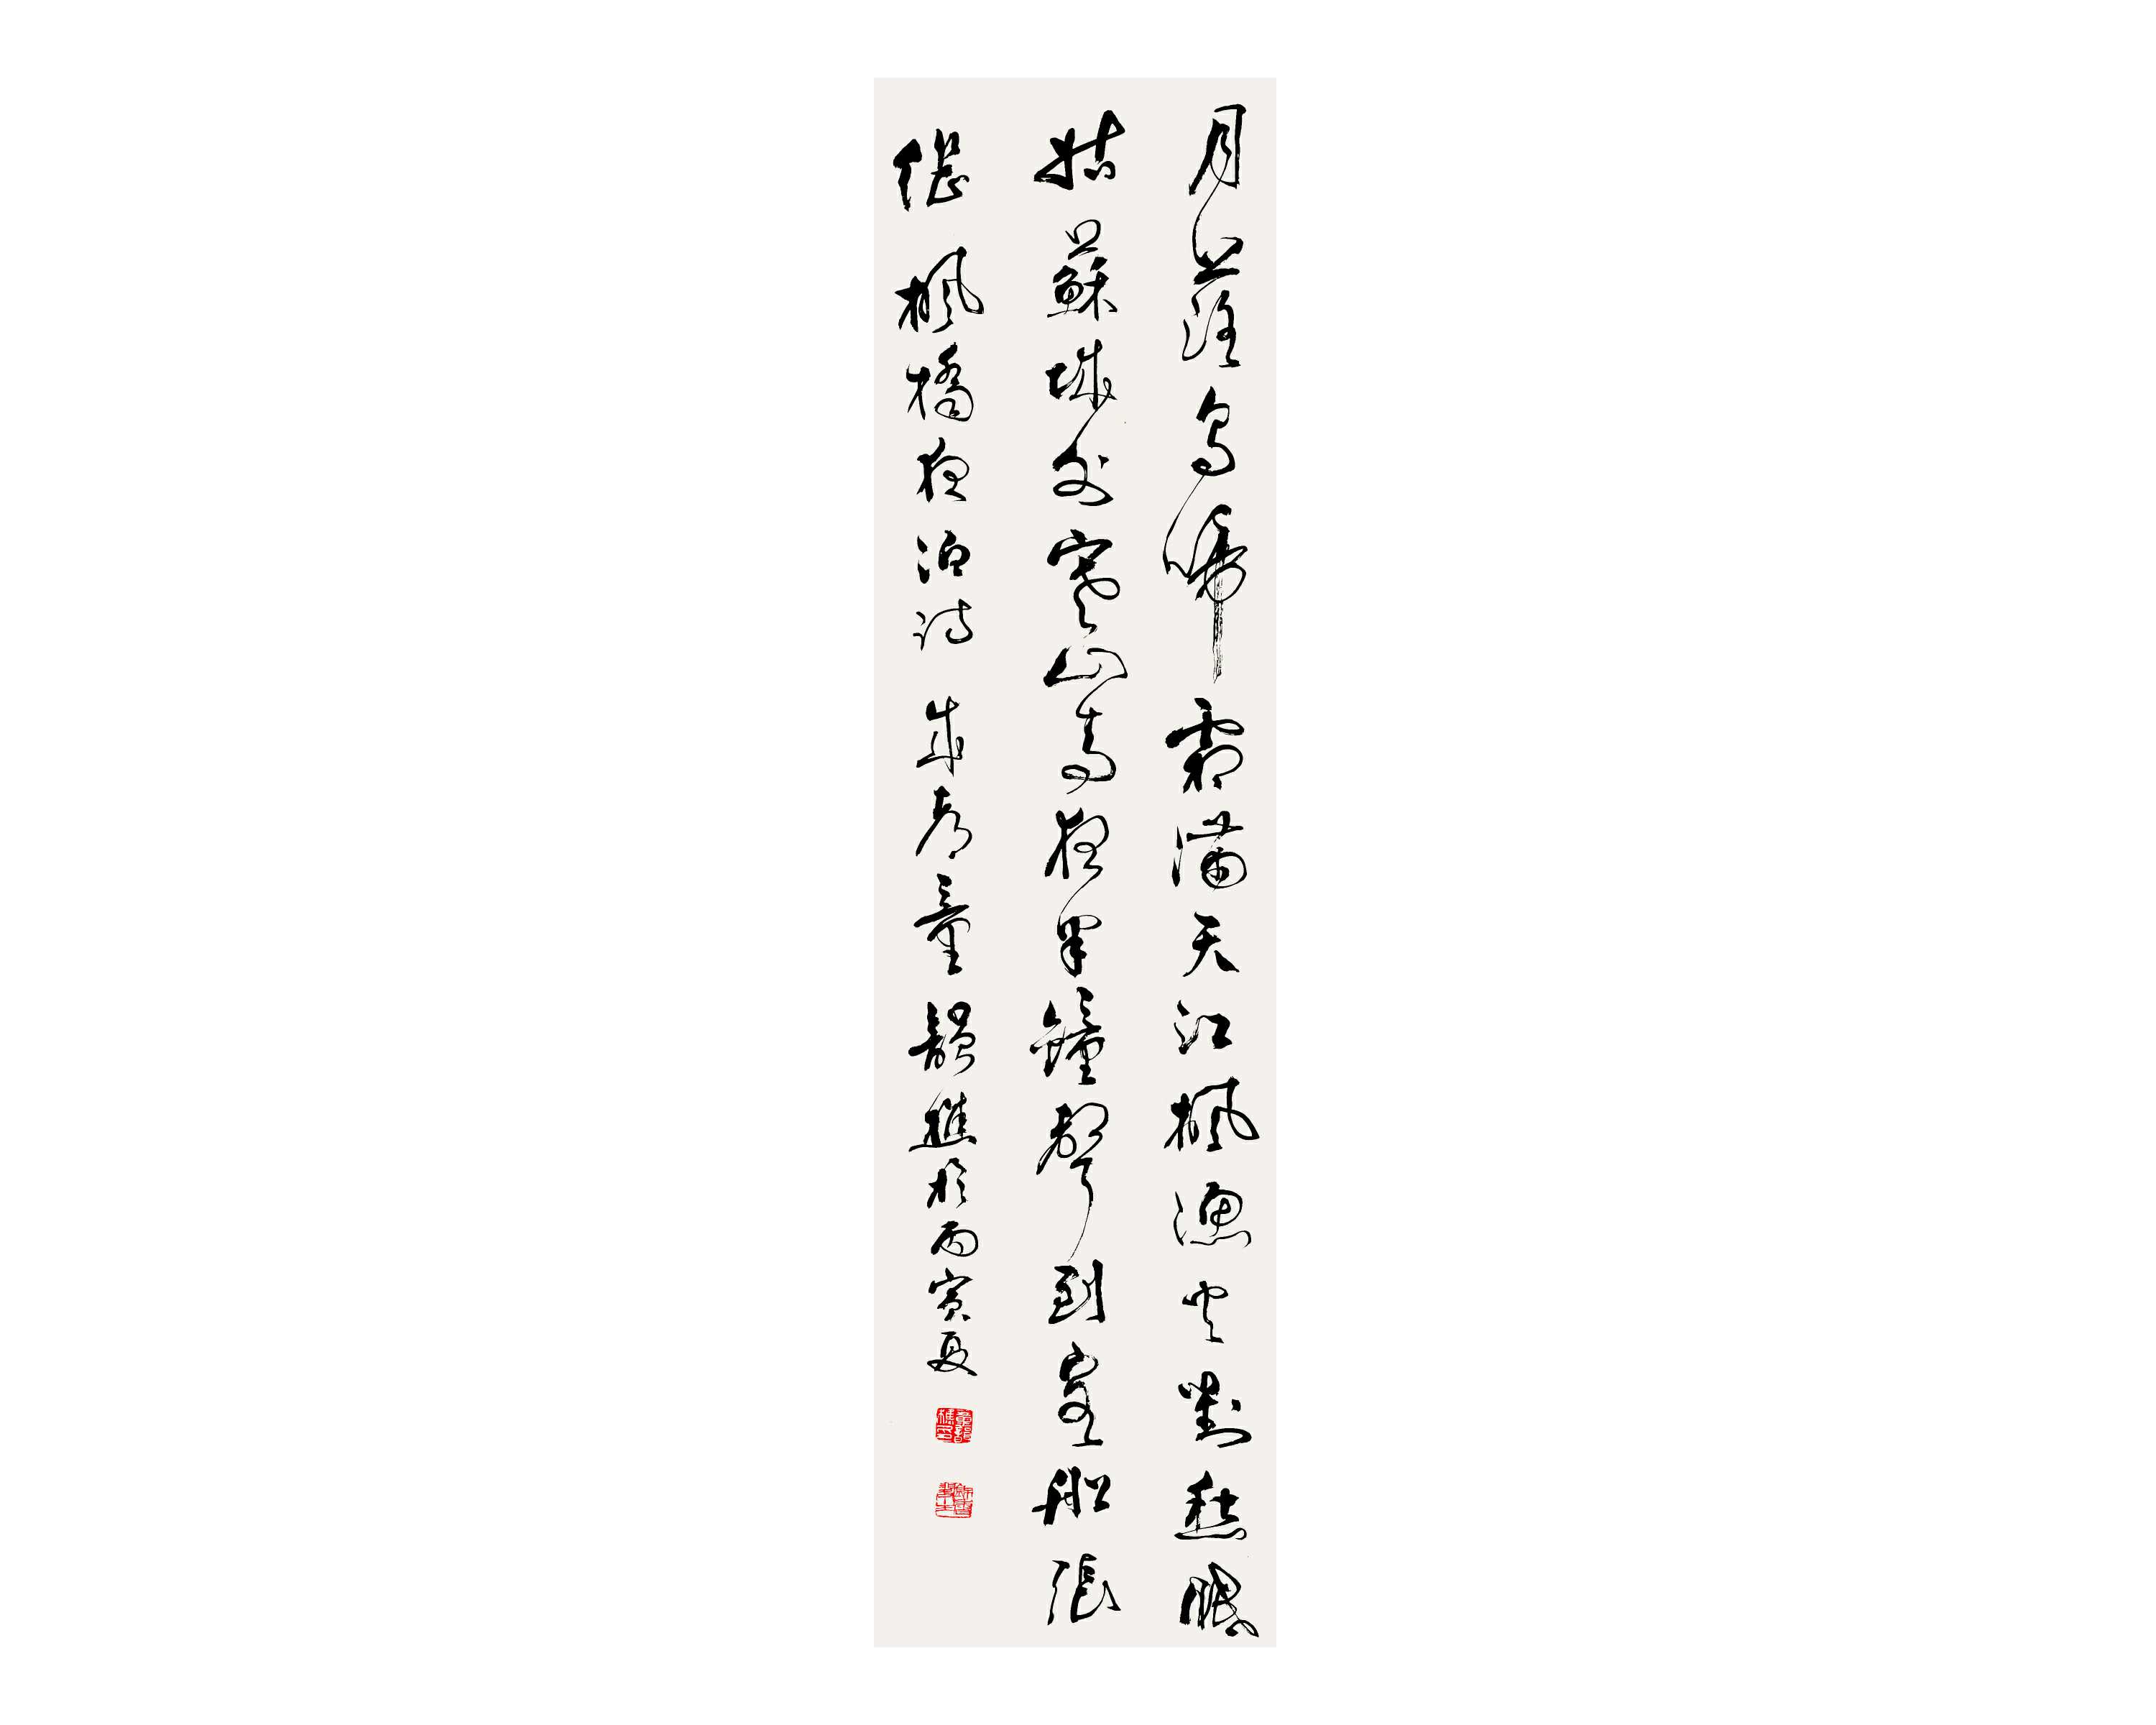 月落烏啼霜滿天江楓漁火對愁眠
姑蘇城外寒山寺夜半鐘聲到客船張
继楓橋夜泊詩 成都童韻樵於丙寅夏